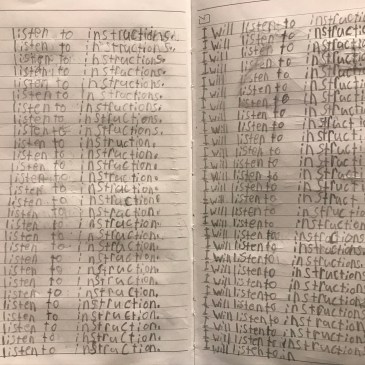 listen to instructions.
listen to instructions.
listen to instructions.
listen to instructions.
listen to instructions.
listen to instructions.
listen to instructions.
listen to instructions.
listen to instructions.
listen to instruction.
listen to instruction.
listen to instruction.
listen to instruction.
listen to instruction.
listen to instruction.
listen to instruction.
listen to instruction.
listen to instruction.
listen to instruction.
listen to instruction.
listen to instruction.
listen to instruction.
listen to instruction.
listen to instruction.
listen to instruction.
listen to instruction.
listen to instruction.
I will listen to instruction
I will listen to instruction
I will listen to instruction
I will listen to instructi
I will listen to instructi
I will listen to instructi
I will listen to instructi
I will listen to instruct
I will listen to instruct
I will listen to instruct
I will listen to instructi
I will listen to instructi
I will listen to instructi
I will listen to instructi
I will listen to instruct
I will listen to instruct
I will listen to instruction
I will listen to instructions
I will listen to instructions
I will listen to instructions.
I will listen to instructions.
I will listen to instructions
I will listen to instructions
I will listen to instructions
I will listen to instructions.
I will listen to instructions.
I will listen to instructions.
I will listen to in